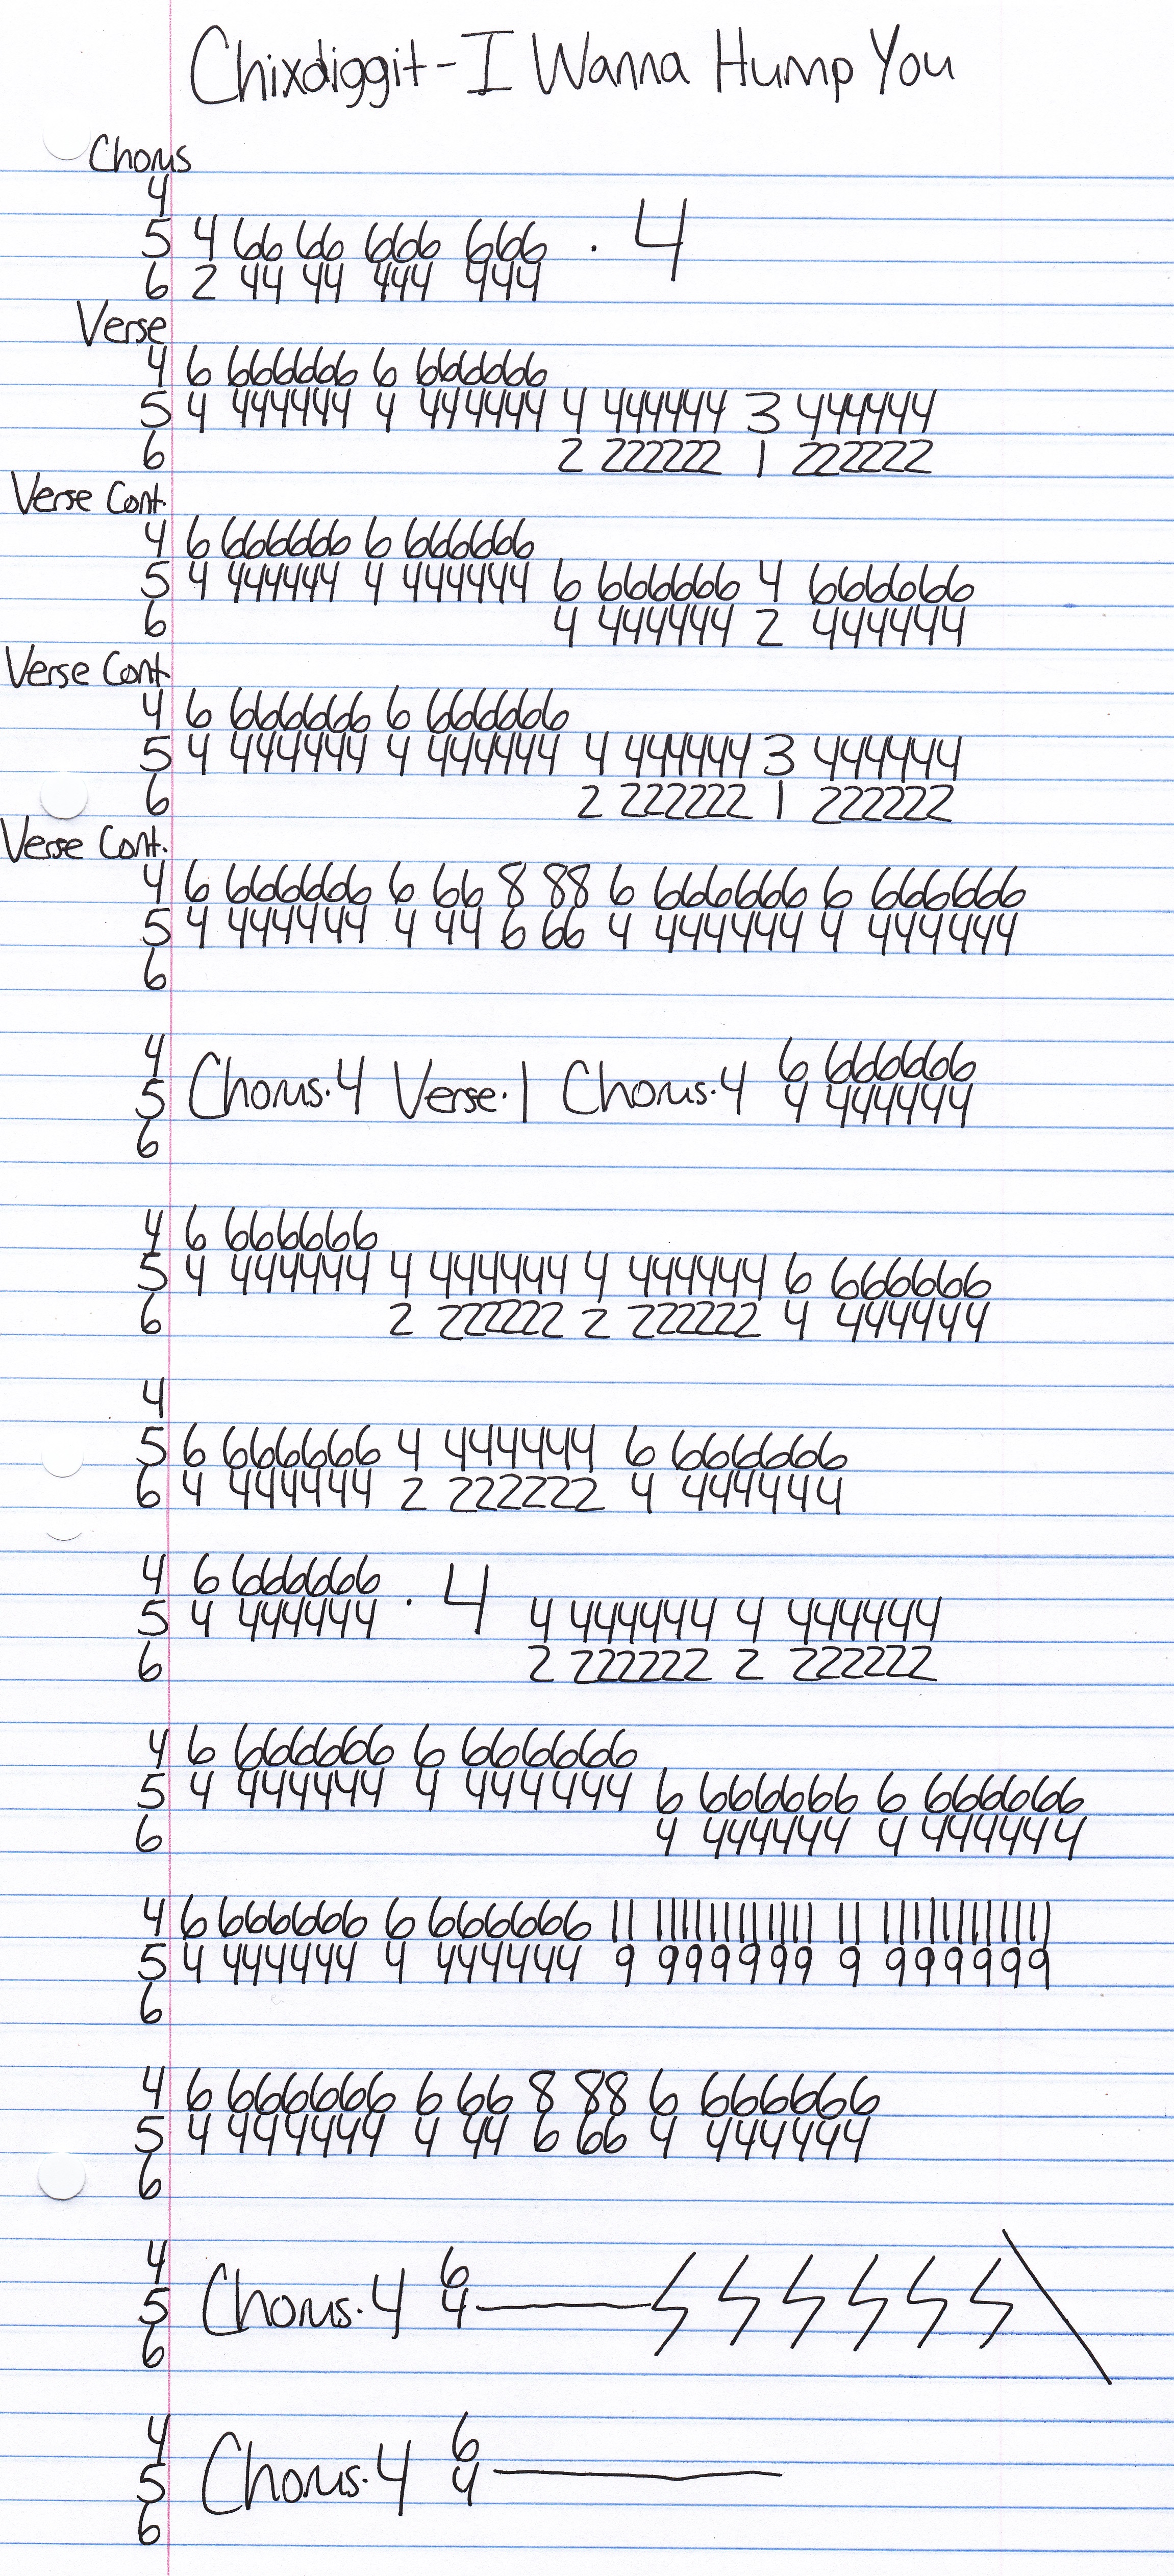 Chixdiggit - I Wanna Hump You
Chorus
4
5 4 66 66 666 666 . 4
6 2 44 44 444 444
Verse
4 6 666666 6 666666
5 4 444444 4 444444 4 444444 3 444444
6 2 222222 1 222222
Verse Cont.
4 6 666666 6 666666
5 4 444444 4 444444 6 666666 4 666666
6 4 444444 2 444444
Verse Cont.
4 6 666666 6 666666
5 4 444444 4 444444 4 444444 3 444444
6 2 222222 1 222222
Verse Cont.
4 6 666666 6 66 8 88 6 666666 6 666666
5 4 444444 4 44 6 66 4 444444 4 444444
6
4 6 666666
5 Chorus.4 Verse.1 Chorus.4 4 444444
6
4 6 666666
5 4 444444 4 444444 4 444444 6 666666
6 2 222222 2 222222 4 444444
4
5 6 666666 4 444444 6 666666
6 4 444444 2 222222 4 444444
4 6 666666 . 4
5 4 444444 4 444444 4 444444
6 2 222222 2 222222
4 6 666666 6 666666
5 4 444444 4 444444 6 666666 6 666666
6 4 444444 4 444444
4 6 666666 6 666666 11 111111111111 11 111111111111
5 4 444444 4 444444 9 999999 9 999999
6
4 6 666666 6 66 8 88 6 666666
5 4 444444 4 44 6 66 4 444444
6
4 6
5 Chorus.4 4
6
4 6
5 Chorus.4 4
6